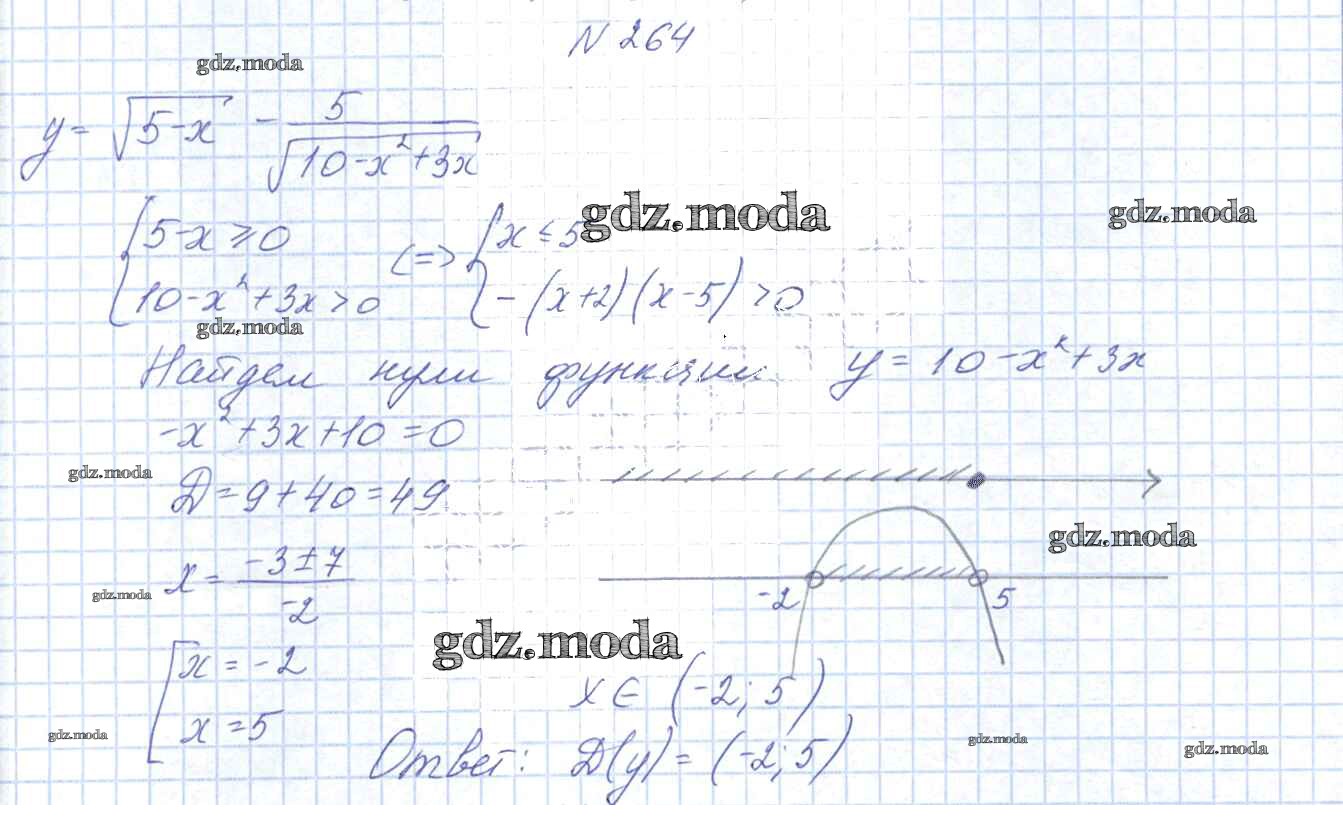 N 264
gdz.moda
y = √(5-x) - 5/√(10-x²+3x)
gdz.moda
gdz.moda
{5-x ≥ 0 <=> {x ≤ 5
{10-x²+3x > 0 {-(x+2)(x-5) > 0
gdz.moda
Найдем нули функции y = 10-x²+3x
-x²+3x+10 = 0
gdz.moda
D = 9+40 = 49
gdz.moda
x = (-3±7)/-2
gdz.moda
-2 5
gdz.moda
[x = -2
x ∈ (-2; 5)
[x = 5
gdz.moda
gdz.moda
gdz.moda
Ответ: D(y) = (-2; 5)